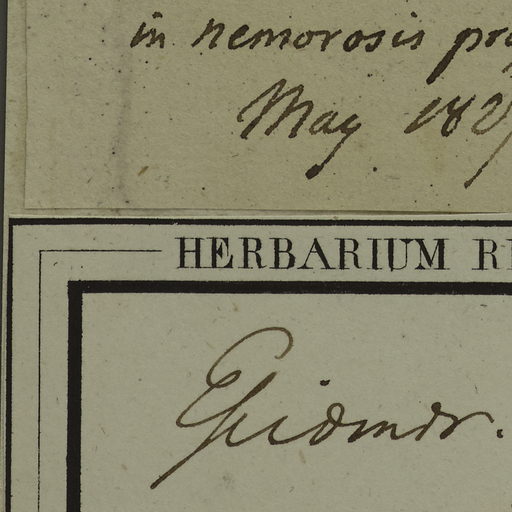 in nemorosis pro
May 182
HERBARIUM R